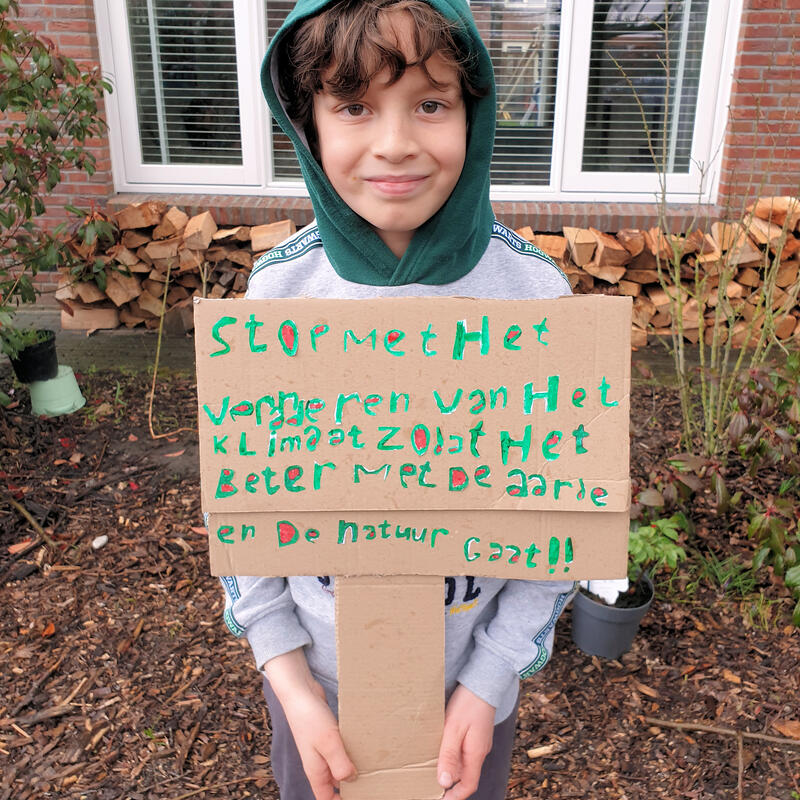 WARTS HOG
WARTS
StOP Met Het
van Het
KLimaat ZOdat Het
Beter Met De aarde
en De natuur Gaat!!